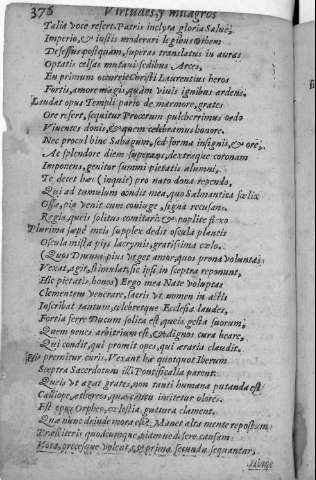 376 Virtudes, y milagros
Talia voce refert. Patris inclyta gloria Salue,
Imperio, & iustis moderari legibus Orbem
Defessus postquam, superas translatus in auras
Optatis celsas mutani sedibus Arces,
En primum occurrit Christi Laurentius heros
Fortis, amore magis, quàm viuis ignibus ardens,
Laudat opus Templi pario de marmore, grates
Ore refert, sequitur Procerum pulcherrimus ordo
Viuentes donis, & quem celebramus honore.
Nec procul hinc Sahagun, sed forma insignis, & ore,
Ac splendore diem superans, dextraque coronam
Imponens, genitor summi pietatis alumni,
Te decet hæc (inquit) pro nato dona rependo,
Qui ad tumulum condit mea, quo Salmantica fælix
Ossa, piæ venit cum coniuge, signa recusans
Regia, queis solitus comitari: & poplite flexo
Plurima supè meis supplex dedit oscula plantis
Oscula mista pijs lacrymis, gratissima cælo.
(Quos Dnum, pius vrget amor, quos prona voluntas
Vexat, agit, stimulat, sic ipsi in sceptra reponunt,
Hic pietatis, honos) Ergo mea Nate voluptas
Clementem venerare, sacris vt nomen in actis
Inscribat tantum, celebretque Ecclesia laudes,
Fortia ferre Ducum solita est queis gesta suorum;
Quem penes arbitrium est, & dignos cura beare,
Qui condit, qui promit opes, qui æraria claudit.
premitur curis. Vexant hæ quotquot Iberum
Sceptra Sacerdotum illi Pontificalia parent.
Queis vt agat grates, non tanti humana putanda est
Calliope, atheros quæ cantu inuitetur olores.
Est opus Orpheo, cælestia guttura clament.
Qua nunc deinde mora est? Manet alta mente repostum
Præstiteris quodcunque, piam vedisere causam:
Vota, precesque volent, & prima secunda sequantur,